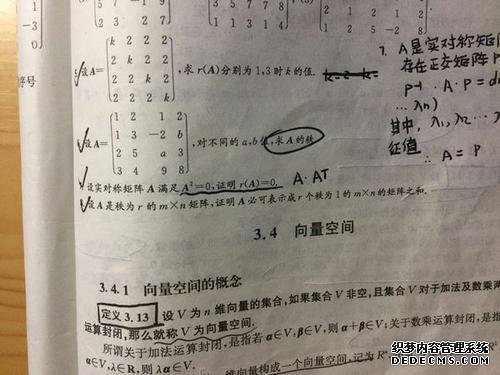 5 7 -1 9
2 3 7
3 5 7 7 8
1 4 1 3 4
1 3 2
1 2 5 -2 8
1
-3
0
序号
设 A= k 2 2 2
2 k 2 2
2 2 k 2
2 2 2 k
,求 r(A)分别为 1,3 时 k 的值.
设 A= 1 2 1 2
1 3 -2 b
2 5 a 3
3 4 9 8
,对不同的 a,b 值,求 A 的秩
设实对称矩阵 A 满足 A²=0,证明 r(A)=0. A·Aᵀ
设 A 是秩为 r 的 m×n 矩阵,证明 A 必可表示成 r 个秩为 1 的 m×n 的矩阵之和.
7. A是实对称矩
存在正交矩阵 P
P⁻¹·A·P=di
…λn)
其中, λ₁, λ₂…
征值
∴ A=P
3.4 向量空间
3.4.1 向量空间的概念
定义 3.13 设 V 为 n 维向量的集合,如果集合 V 非空,且集合 V 对于加法及数乘两
运算封闭,那么就称 V 为向量空间.
所谓关于加法运算封闭,是指若 α∈V,β∈V,则 α+β∈V;关于数乘运算封闭,是指
α∈V,λ∈R,则 λα∈V.
维向量构成一个向量空间,记为 Rⁿ
织梦内容管理系统
DEDECMS.COM